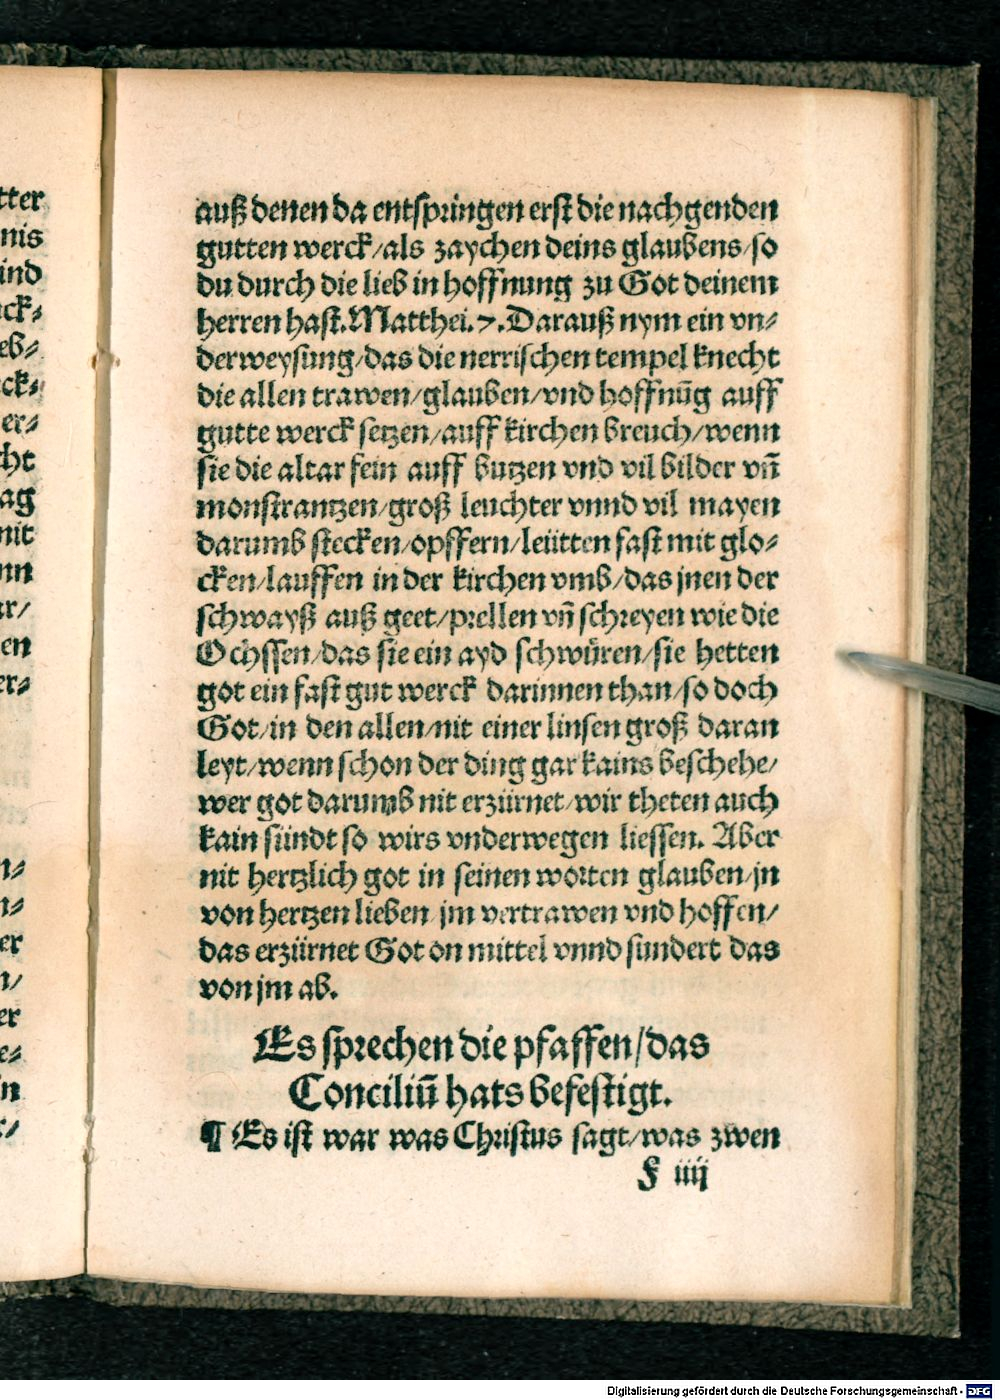 auß denen da entspringen erst die nachgenden
gutten werck/als zaychen deins glaubens/so
du durch die lieb in hoffnung zu Got deinem
herren hast.Matthei.7.Darauß nym ein vn⸗
derweysung/das die nerrischen tempel knecht
die allen trawen/glauben/vnd hoffnūg auff
gutte werck setzen/auff kirchen breuch/wenn
sie die altar fein auff butzen vnd vil bilder vñ
monstrantzen/groß leuchter vnnd vil mayen
darumb stecken/opffern/leütten fast mit glo⸗
cken/lauffen in der kirchen vmb/das jnen der
schwayß auß geet/prellen vñ schreyen wie die
Ochssen/das sie ein ayd schwüren/sie hetten
got ein fast gut werck darinnen than/so doch
Got/in den allen/nit einer linsen groß daran
leyt/wenn schon der ding gar kains beschehe/
wer got darumb nit erzürnet/wir theten auch
kain sündt so wirs vnderwegen liessen. Aber
nit hertzlich got in seinen worten glauben/jn
von hertzen lieben/jm vertrawen vnd hoffen/
das erzürnet Got on mittel vnnd sundert das
von jm ab.
Es sprechen die pfaffen/das
Conciliū hats befestigt.
¶ Es ist war was Christus sagt/was zwen
F iiij
tter
nis
ind
ck⸗
eb⸗
ck⸗
er⸗
cht
ag
nit
nn
ar/
en
er⸗
n⸗
n⸗
er
n/
er
e⸗
in
Digitalisierung gefördert durch die Deutsche Forschungsgemeinschaft - DFG